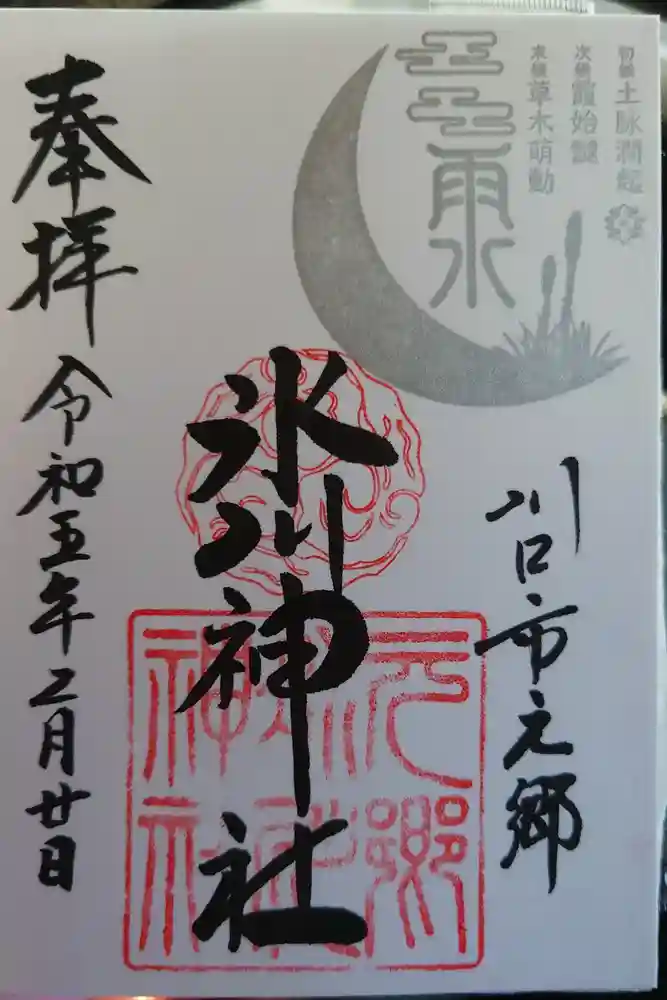 初候 土脉潤起
次候 霞始靆
末候 草木萌動
雨水
川口市元郷
氷川神社
元郷
氷川
神社
奉拝
令和五年二月廿日